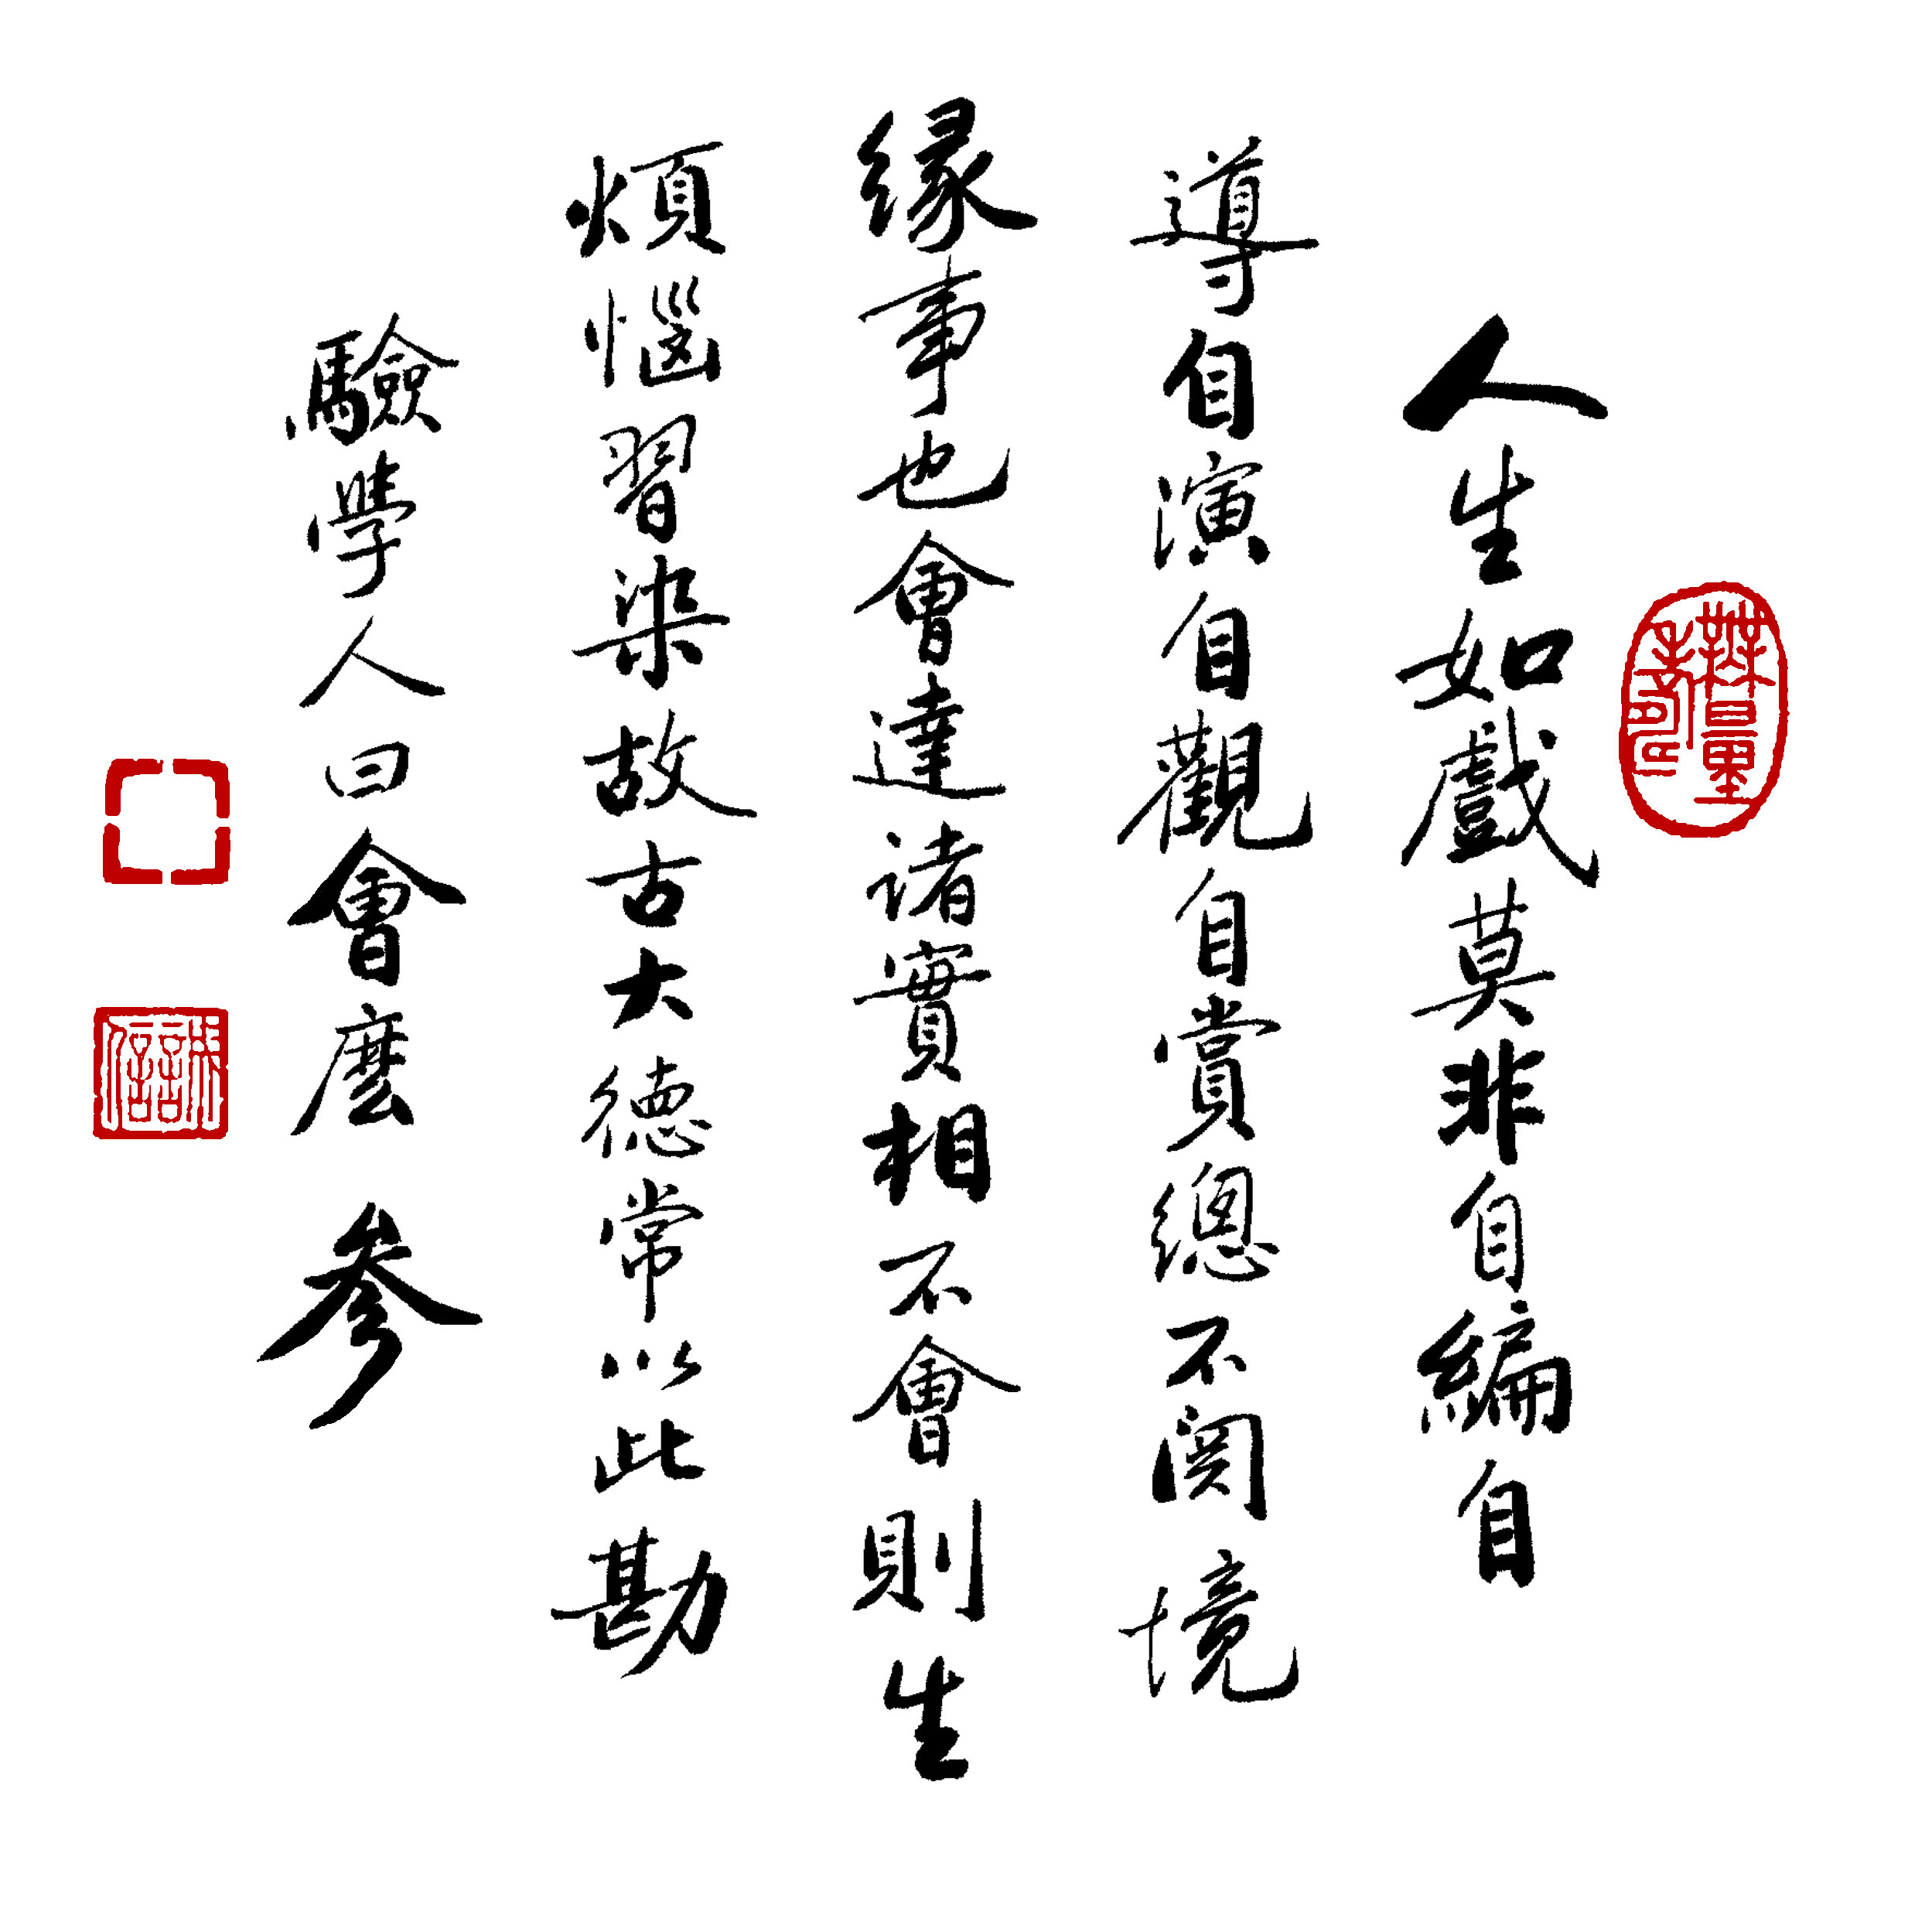 人生如戲莫非自編自
導自演自觀自賞總不関境
緣事也會達諸實相不會則生
煩惱習染故古大德常以此勘
驗學人曰會麼 參
無量壽